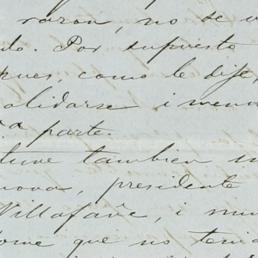 razon, no se
to. Por supuesto
pues, como le dije,
alidarse i meno
a parte.
tuve tambien
nova, presidente
Villafañe, i mu
forme que no tenia